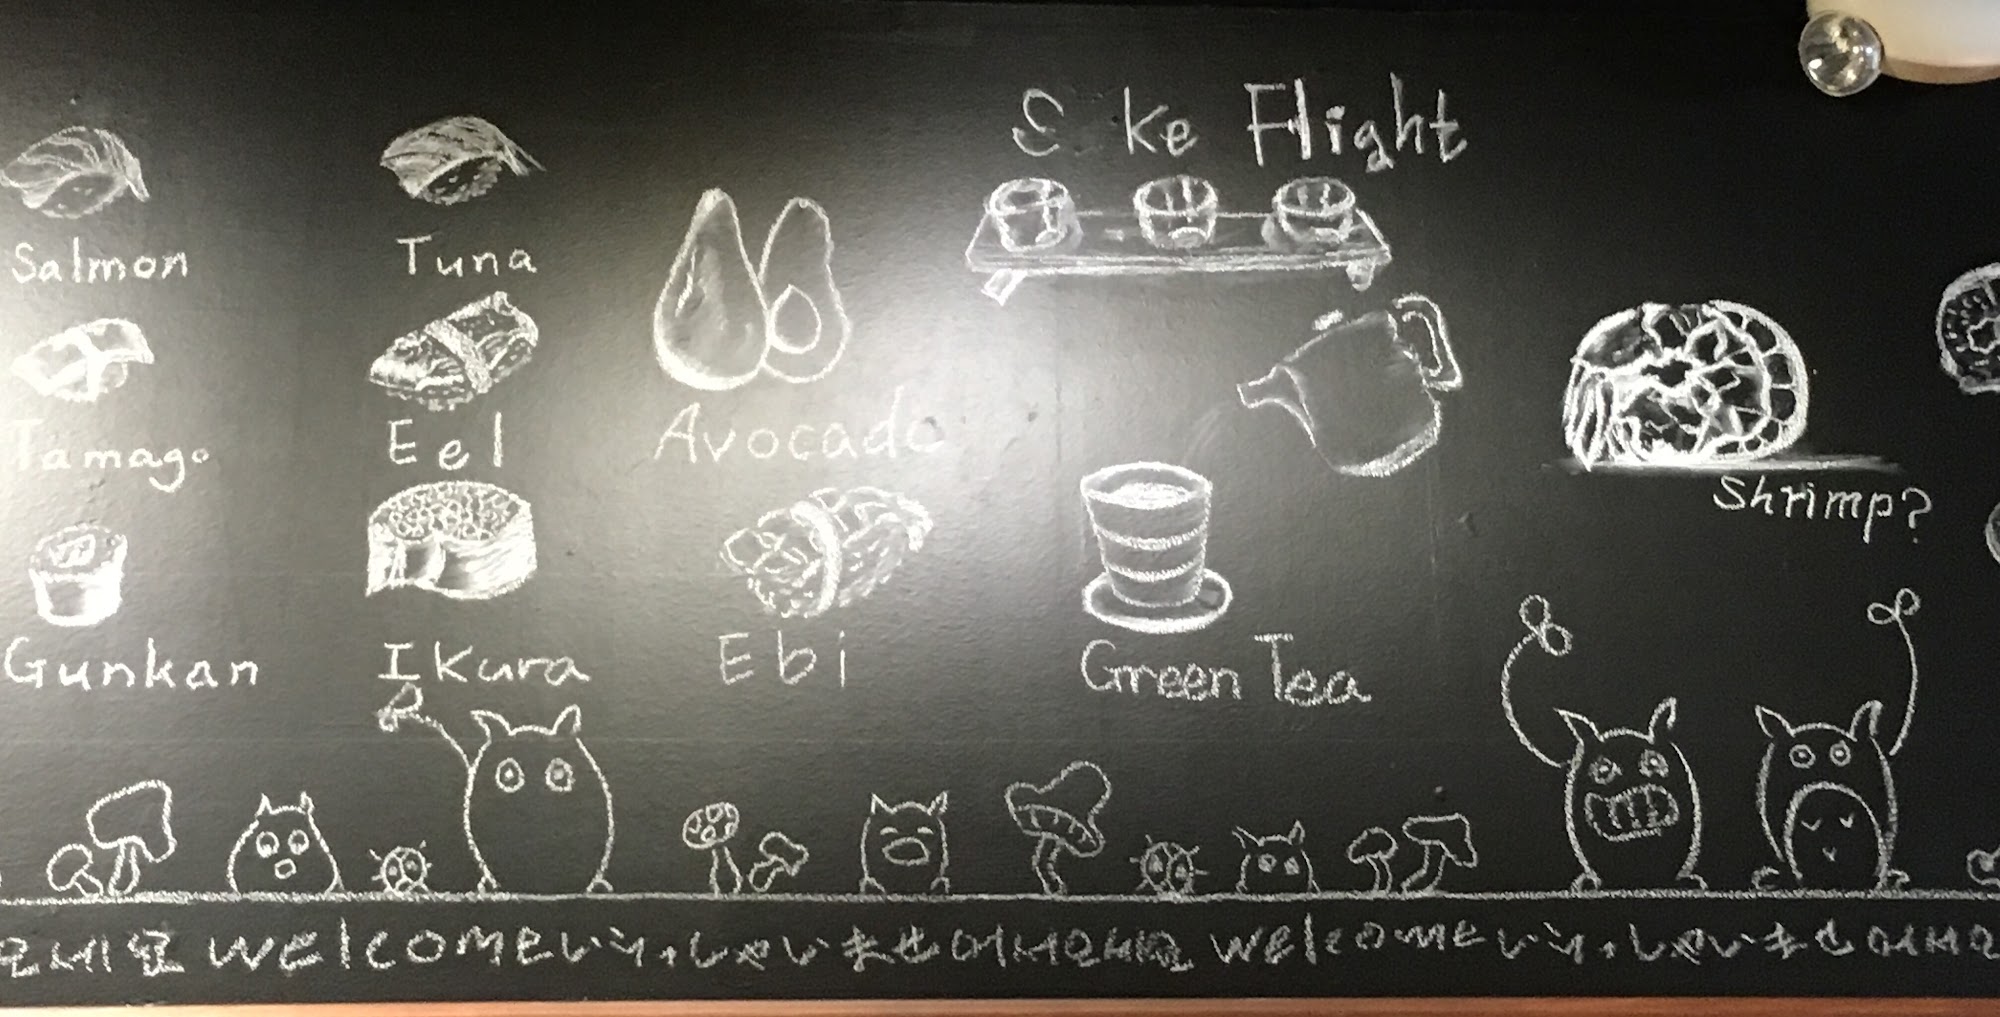 S ke Flight
Salmon
Tuna
Tamago
Eel
Avocado
Shrimp?
Gunkan
Ikura
Ebi
Green Tea
오세요 welcome いらっしゃいませ 어서오세요 welcome いらっしゃいませ 어서오